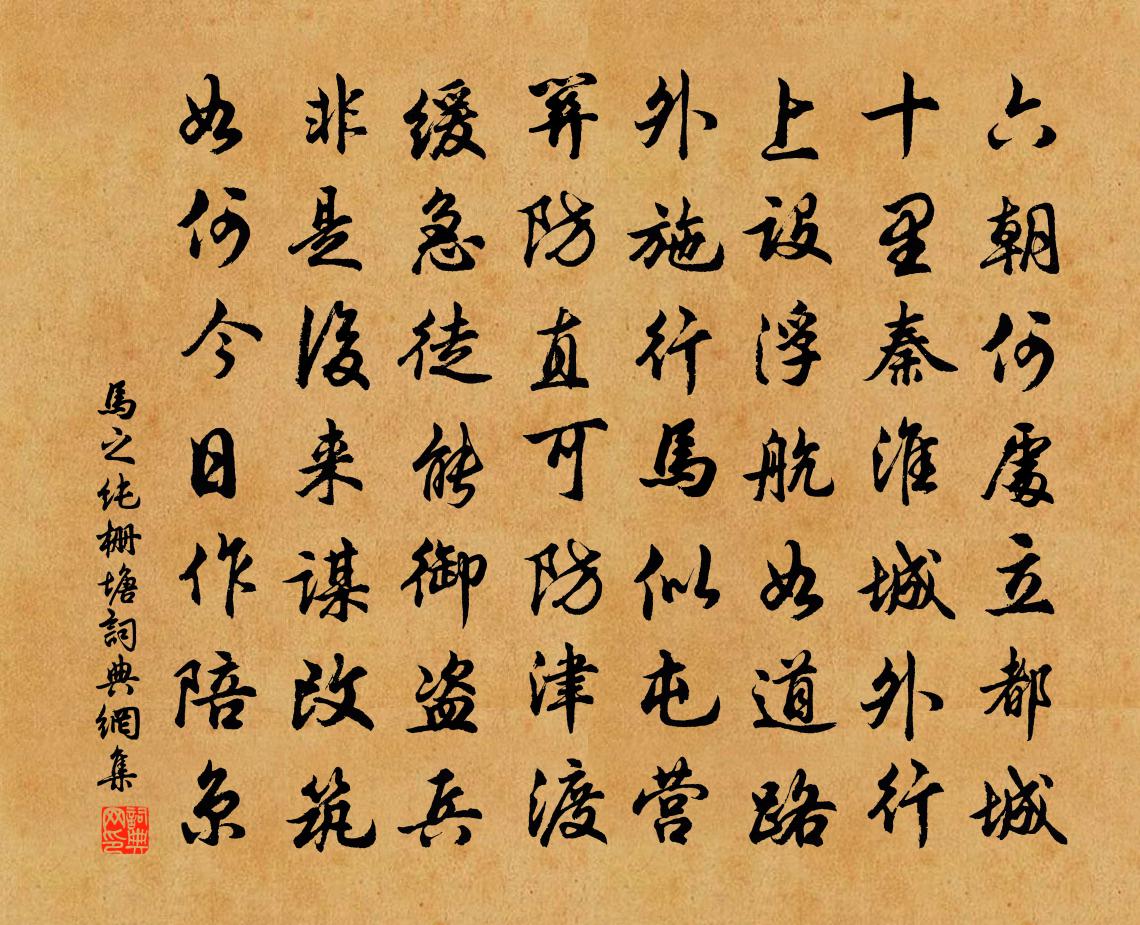 六朝何處立都城
十里秦淮城外行
上設浮航如道路
外施行馬似屯营
筭防直可防津渡
缓急徒能御盗兵
非是後来謀改筑
如何今日作陪京
馬之纯栅塘詞典網集
詞典网印